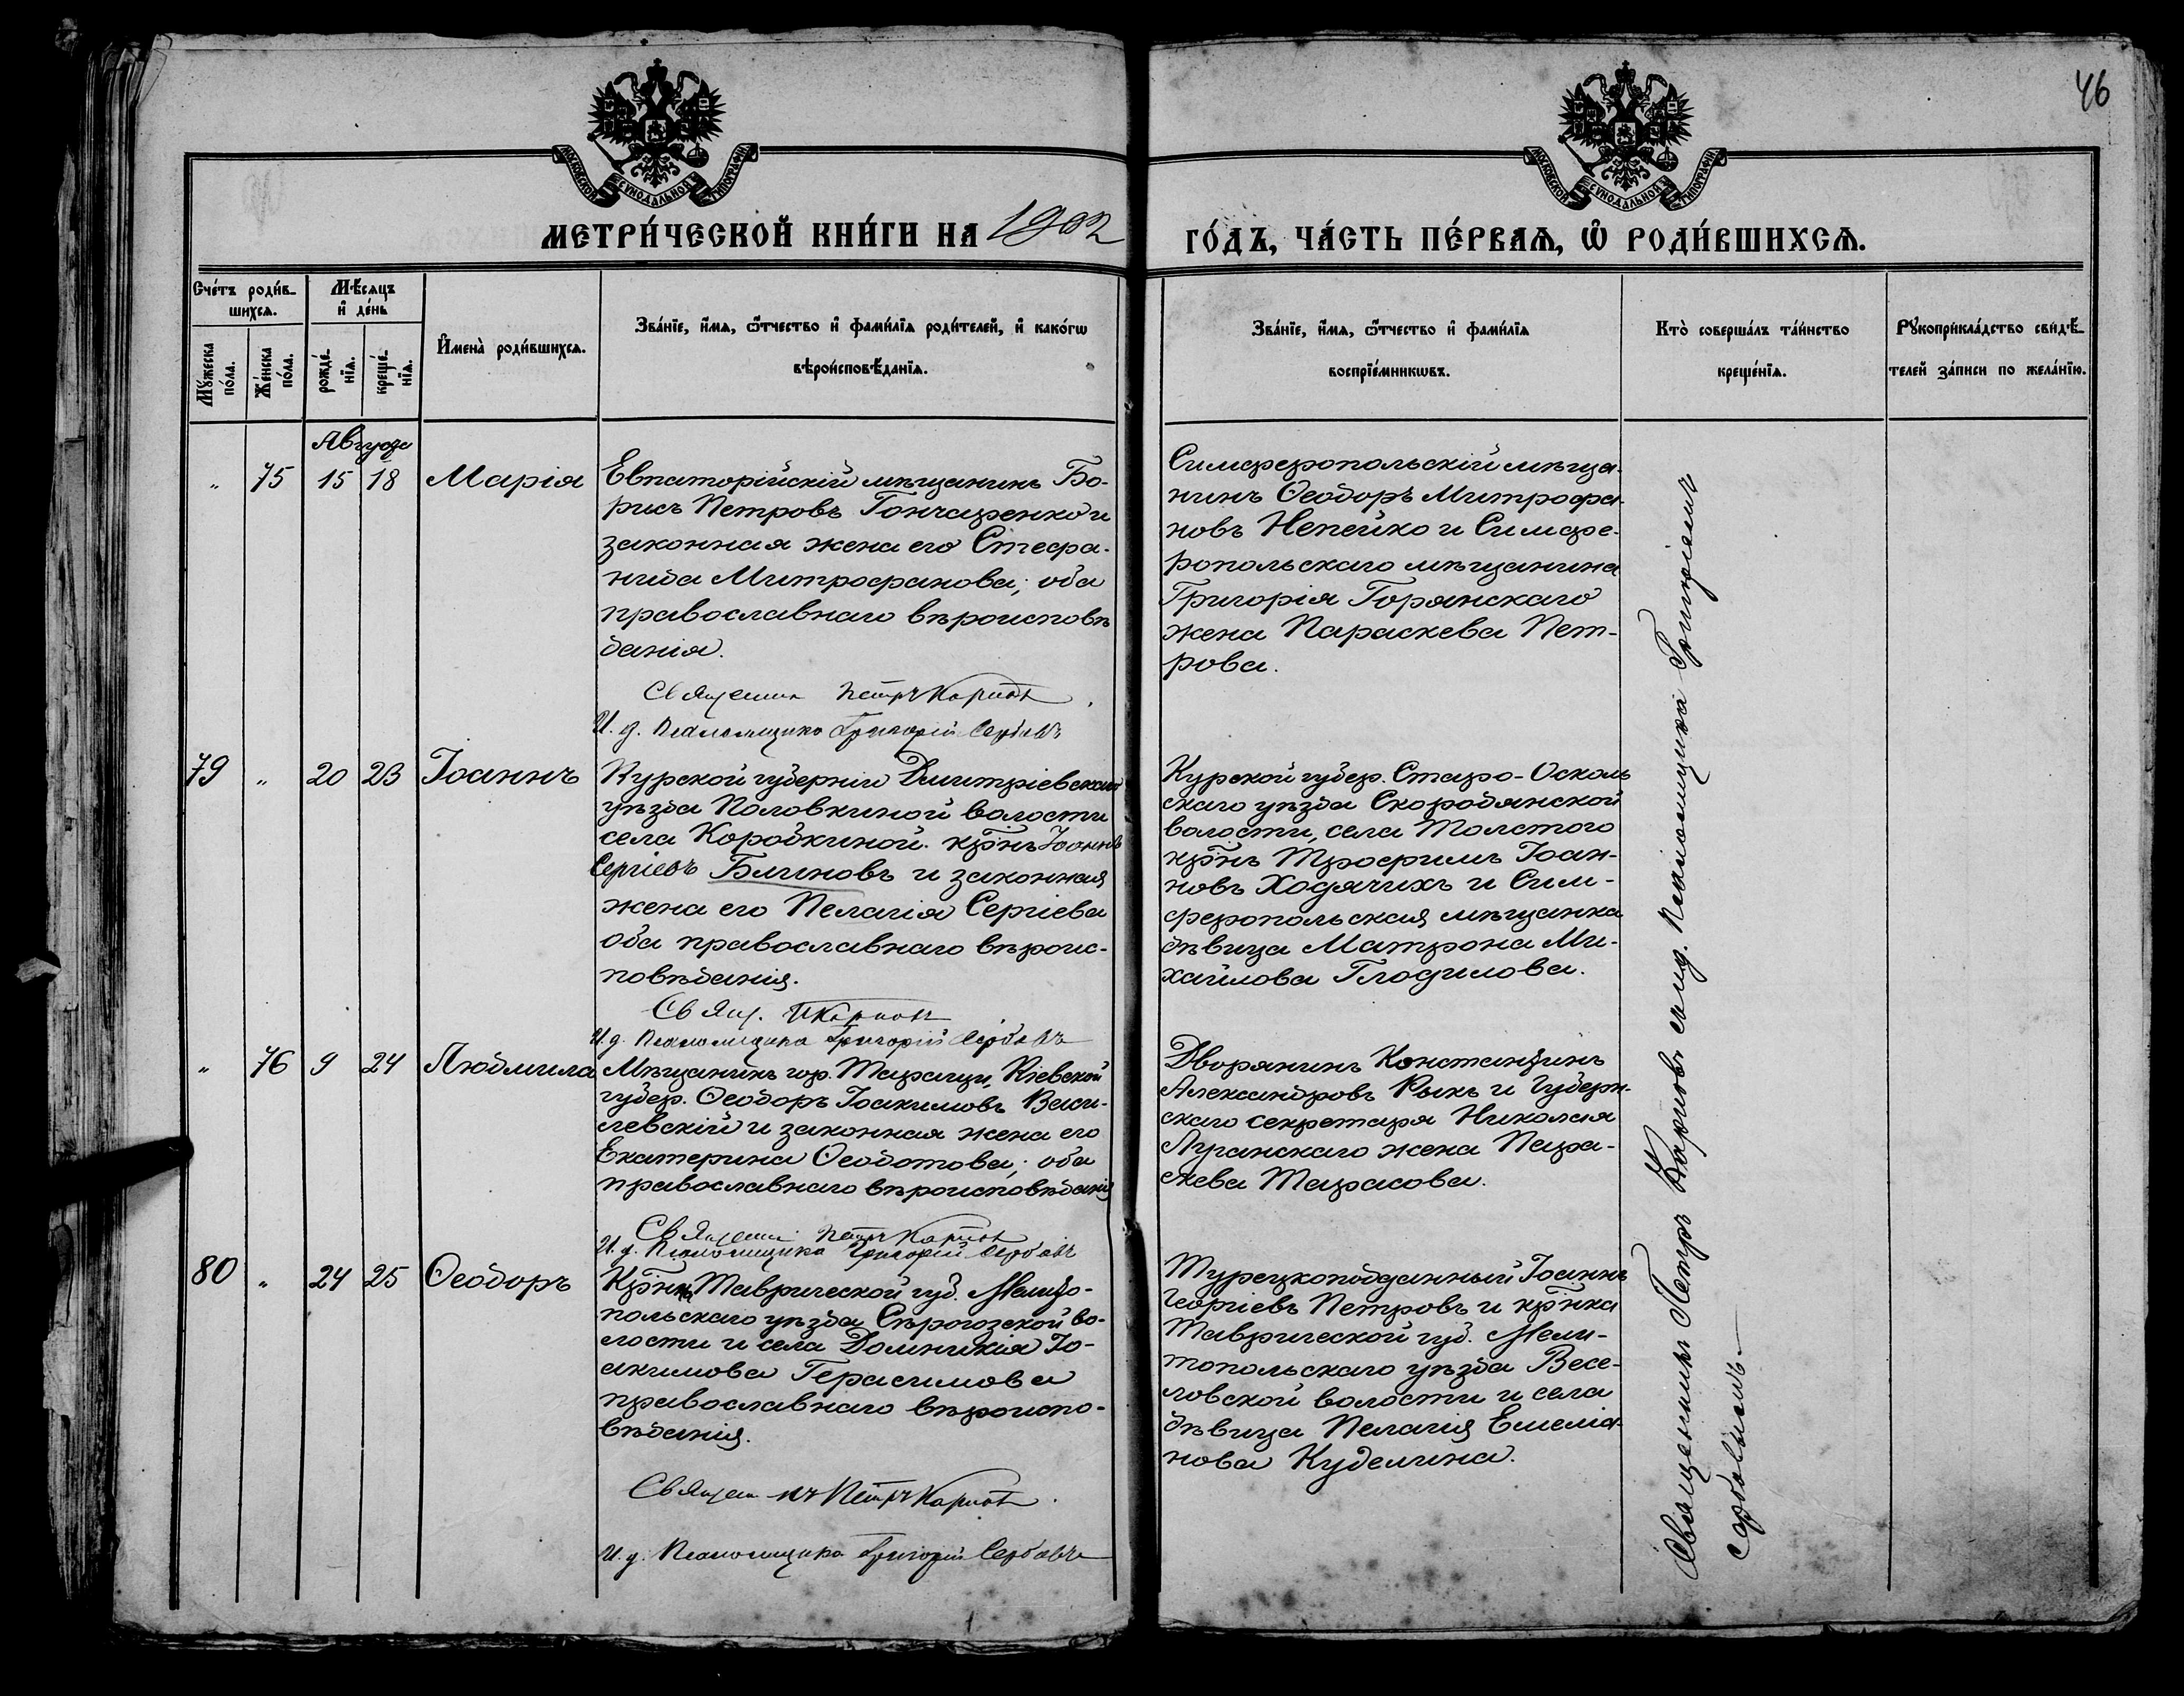 46
МОСКОВСКОЙ СѴНОДАЛЬНОЙ ТИПОГРАФІИ
МОСКОВСКОЙ СѴНОДАЛЬНОЙ ТИПОГРАФІИ
МЕТРИ́ЧЕСКОЙ КНИ́ГИ НА 1902
ГО́ДЪ, ЧА́СТЬ ПЕ́РВАѦ, Ѡ҆ РОДИ́ВШИХСѦ.
Сче́тъ роди́в-
шихсѧ.
Мꙋжеска по́ла.
Же́нска по́ла.
Мѣ́сѧцъ
и҆ де́нь
рожде́-
нїѧ.
креще́-
нїѧ.
И҆мена̀ роди́вшихсѧ.
Зва́нїе, и҆́мѧ, ѻ҆́тчество и҆ фами́лїѧ роди́телей, и҆ како́гѡ
вѣроисповѣ́данїѧ.
Зва́нїе, и҆́мѧ, ѻ҆́тчество и҆ фами́лїѧ
воспрїе́мникѡвъ.
Кто̀ соверша́лъ та́инство
креще́нїѧ.
Рꙋкоприкла́дство свидѣ́-
телей за́писи по жела́нїю.
Августа
" 75 15 18 Марія
Евпаторійскій мѣщанинъ Бо-
рисъ Петровъ Гончаренко и
законная жена его Стефа-
нида Митрофанова; оба
православнаго вѣроисповѣ
данія.
Священникъ Петръ Карповъ
И. д. Псаломщика Григорій Сербовъ
Симферопольскій мѣща-
нинъ Ѳеодоръ Митрофа-
новъ Непейко и Симфе-
ропольскаго мѣщанина
Григорія Горянскаго
жена Параскева Пет-
рова.
79 " 20 23 Іоаннъ
Курской губерніи Дмитріевскаго
уѣзда Половкиной волости
села Коробкиной. крнъ Іоаннъ
Сергіевъ Блиновъ и законная
жена его Пелагія Сергіева
оба православнаго вѣроис-
повѣданія.
Свящ. П Карповъ
И. д. Псаломщика Григорій Сербовъ
Курской губер. Старо-Осколь
скаго уѣзда Скороднянской
волости, села Толстого
крнъ Трофимъ Іоан-
новъ Ходячихъ и Сим-
феропольская мѣщанка
дѣвица Матрона Ми-
хайлова Глодилова.
" 76 9 24 Людмила
Мѣщанинъ гор. Таращи, Кіевской
губер. Ѳеодоръ Іоакимовъ Васи-
левскій и законная жена его
Екатерина Ѳеодотова; оба
православнаго вѣроисповѣданія
Священникъ Петръ Карповъ
И. д. Псаломщика Григорій Сербовъ
Дворянинъ Константинъ
Александровъ Рыкъ и Губерн-
скаго секретаря Николая
Луганскаго жена Пара-
скева Тарасова.
80 " 24 25 Ѳеодоръ
Крнка Таврической губ. Мелито-
польскаго уѣзда Сѣрогозской во-
лости и села Домникія Іо-
акимова Герасимова
православнаго вѣроиспо-
вѣданія.
Священникъ Петръ Карповъ
И. д. Псаломщика Григорій Сербовъ
Турецкоподданный Іоаннъ
Георгіевъ Петровъ и крнка
Таврической губ. Мели-
топольскаго уѣзда Весе-
ловской волости и села
дѣвица Пелагія Емелія-
нова Куделина.
Священникъ Петръ Карповъ съ и.д. псаломщика Григоріемъ
Сербовымъ